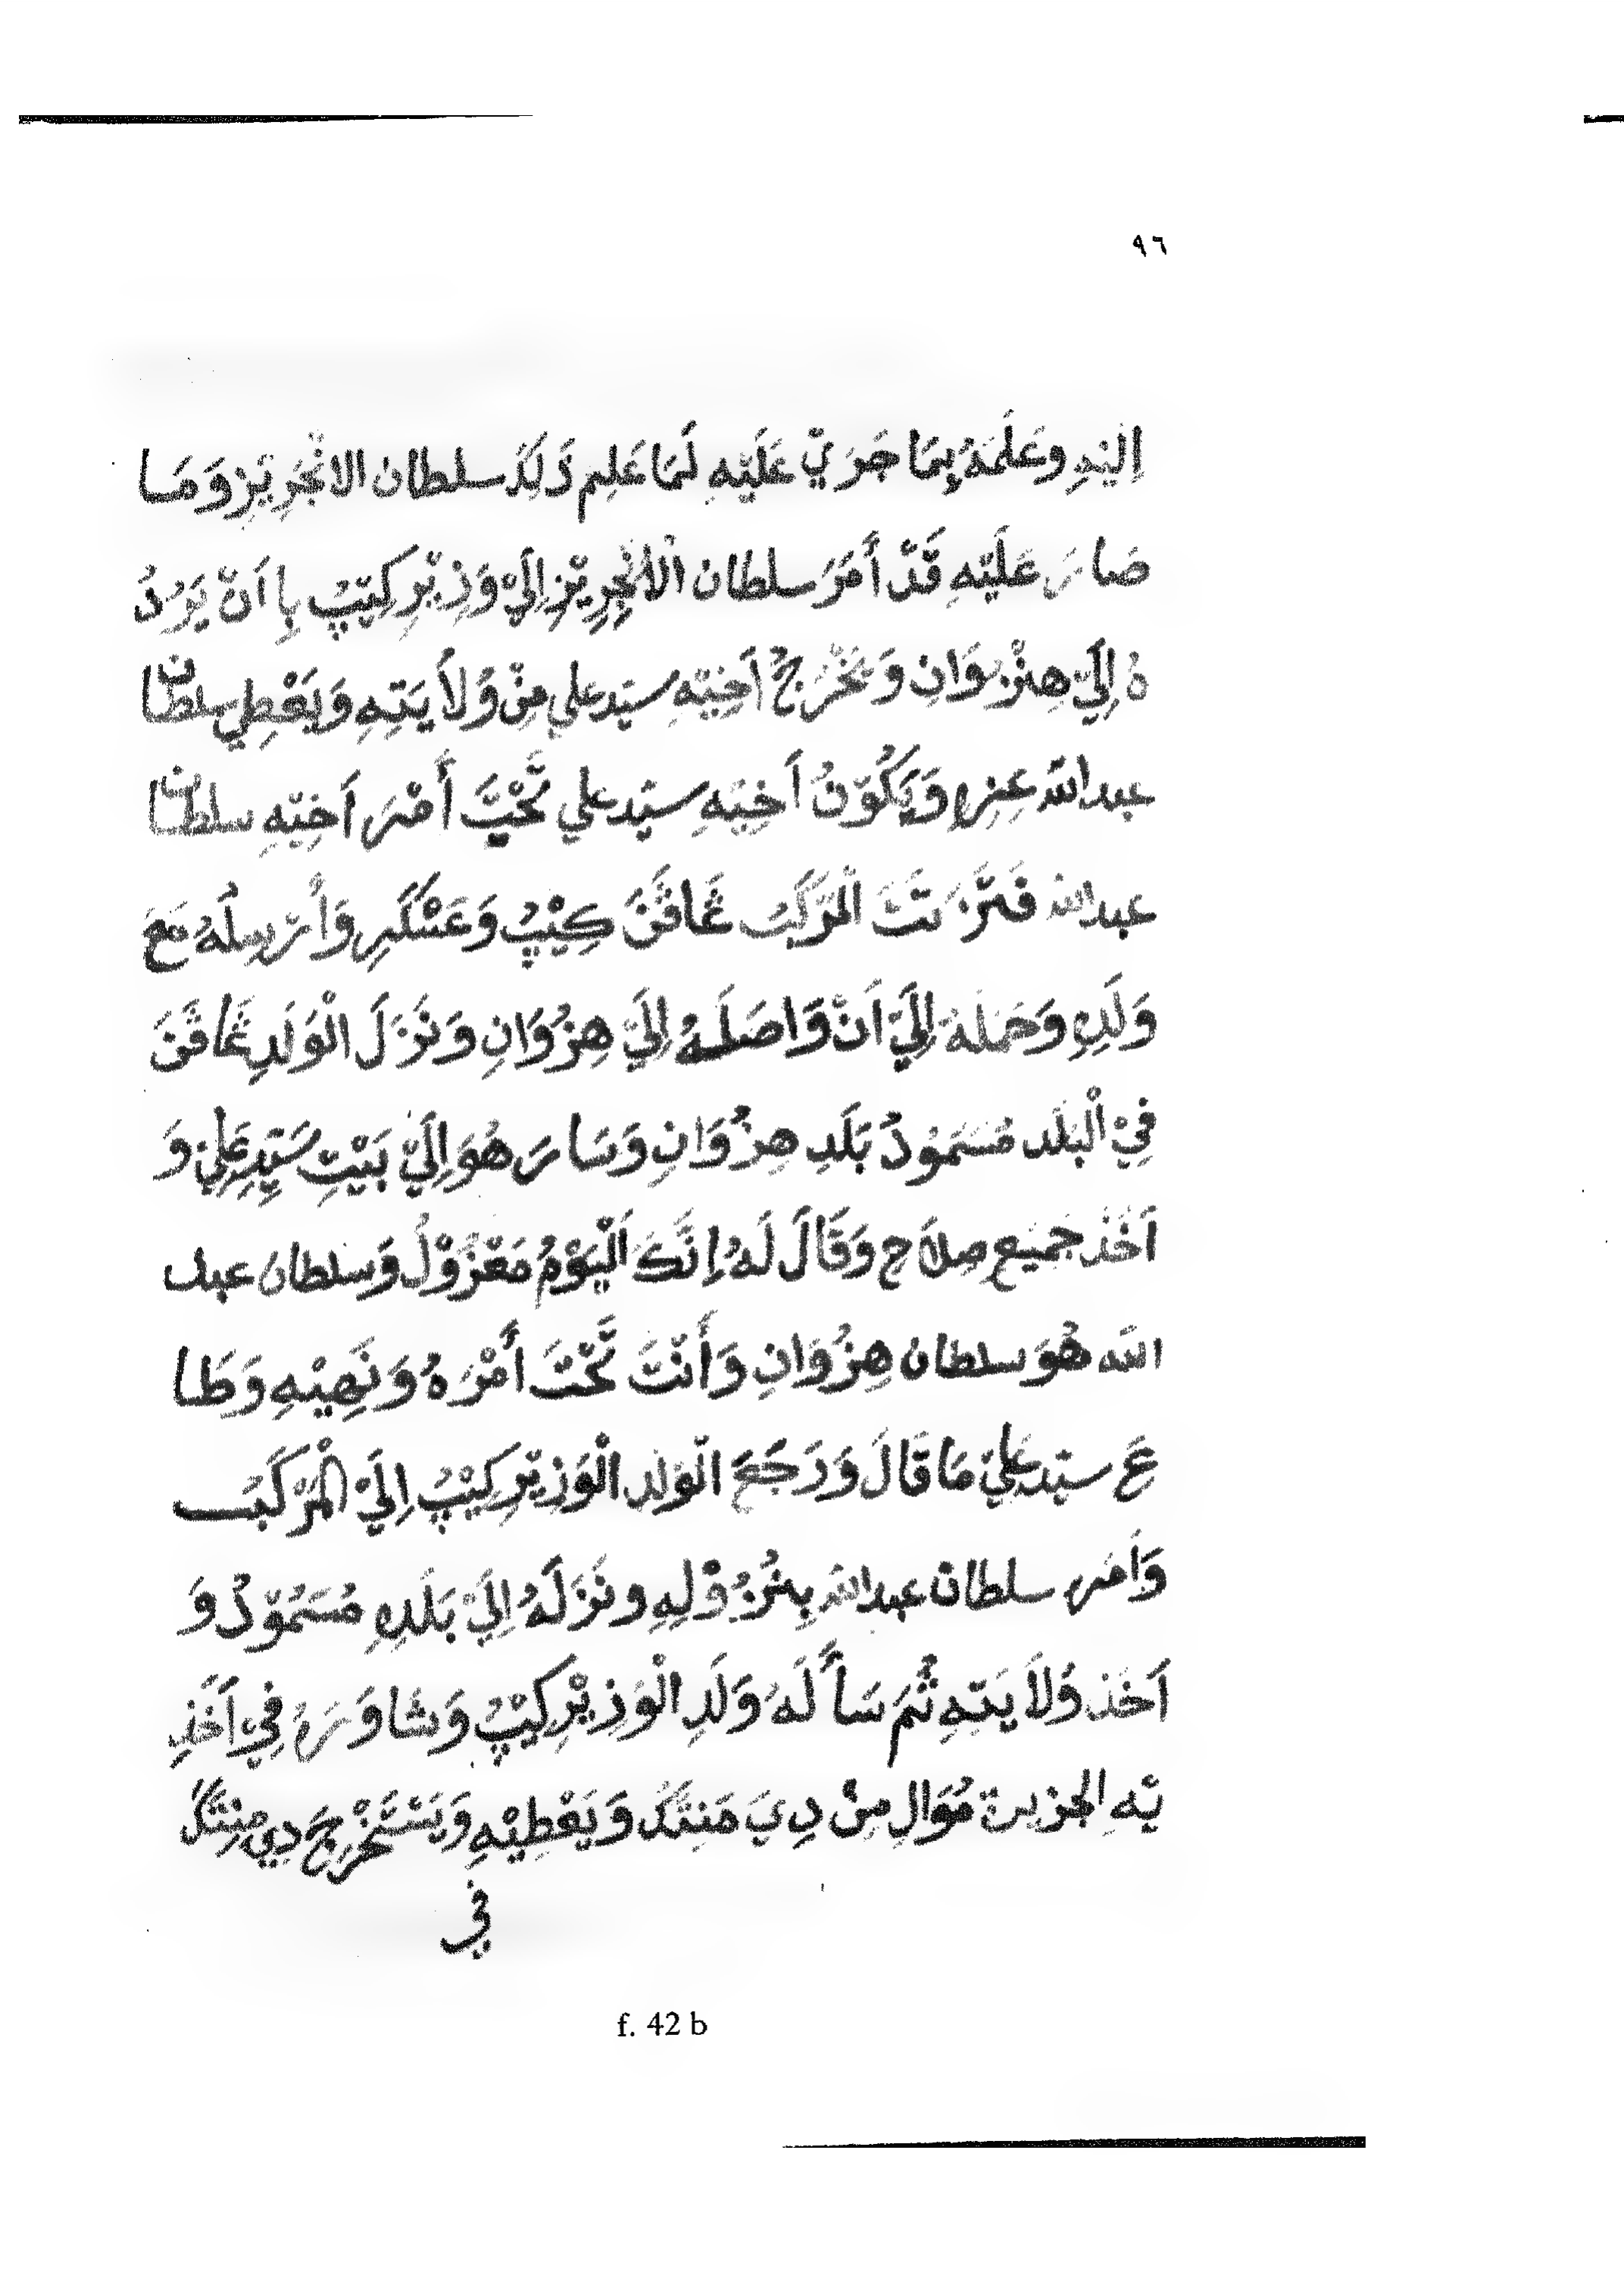 ٩٦
اِلَيْهِ وعَلَمَهُ بِمَا جَرَيّ عَلَيْهِ لَمَا عَلِم ذَلِكَ سلطان الانْجَرِيَزِ وَمَا
صَارَ عَلَيْهِ قَدْ أَمَرَ سلطان الْاَنْجِرِيْزِ اِلَيْ وَزِيْرِ كِيَتِپْ بِا اَنْ يَرُدُ
هُ اِلَيّ هِنْزُوَانِ وَيَخْرُجُ اَخِيْهِ سيّد علي مِنْ وَلاَيَتِهِ وَيَعْطِي سلطان
عبد الله عِزِهِ وَيَكُوْنُ اَخِيَهِ سيّد علي تَحْتَ أَمْرَ اَخِيْهِ سلطان
عبد الله فَتَرَّزَتَتْ الْمَرْكَبْ غَافَنَ كِيْپْ وَعَسْكَرِ وَأَرْسِلُهُ مَعَ
وَلَدِهِ وَحَمَلَهُ اِلَيَّ اَنْ وَاصَلَهُ اِلَيّ هِزُوَانِ وَنَزَلَ الْوَلَدِ غَافَنَ
فِيْ الْبَلَد مُسَمُوْدُ بَلَدِ هِزُوَانِ وَسَارَ هُوَ اِلَيْ بَيْتِ سَيِّدِ عَلِيْ وَ
اَخَذْ جَمِيْع صِلاَح وَقَالَ لَهُ اِنَّكَ الْيَوْمُ مَعْزُوْلُ وَسلطان عبد
الله هُوَ سلطان هِزُوَانِ وَأَنْتَ تَحْتَ أَمْرَهُ وَنَهِيْهِ وَطَا
عَ سيّد عَليّ مَا قَالَ وَرَجَعَ الْوَلد الْوَزِيْرِ كِيْپْ اِلَيْ الْمَرْكَبْ
وَاَمَر سلطان عبد الله بِنُزُوْلِهِ ونَزَلَهُ اِلَيّ بَلَدِهِ مُسَمُوْدُ وَ
اَخَذ وَلاَيَتِهِ ثُمَ سَأَلَهُ وَلَدِ الْوَزِيْرِ كِيْپْ وَشَاوَرَهُ فِيْ اَخَذِ
يْهِ الجزيرة مُوَالِ مِنْ دِيَ مَنِتَكَ وَيَعْطِيْهِ وَيَسْتَخْرِجَ دِي مِنِتَكَ
فِي
f. 42 b